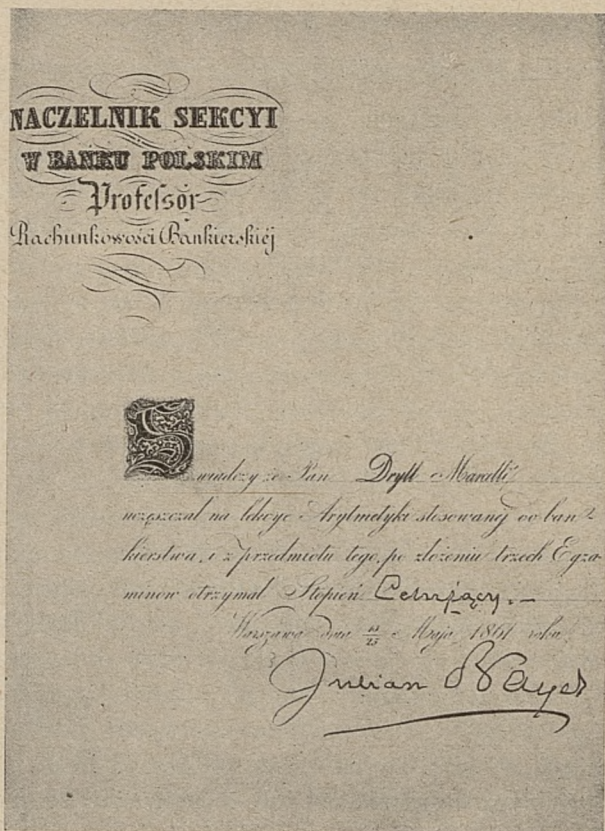 NACZELNIK SEKCYI
W BANKU POLSKIM
Professor
Rachunkowości Bankierskiéj
Swiadczy że Pan Drytt Maralli
uczęszczał na lekcye Arytmetyki stosowanéj do ban-
kierstwa, i z przedmiotu tego, po złożeniu trzech Egza-
minów otrzymał Stopień Celujący.—
Warszawa dnia 13/25 Maja 1861 roku
Julian Bayer